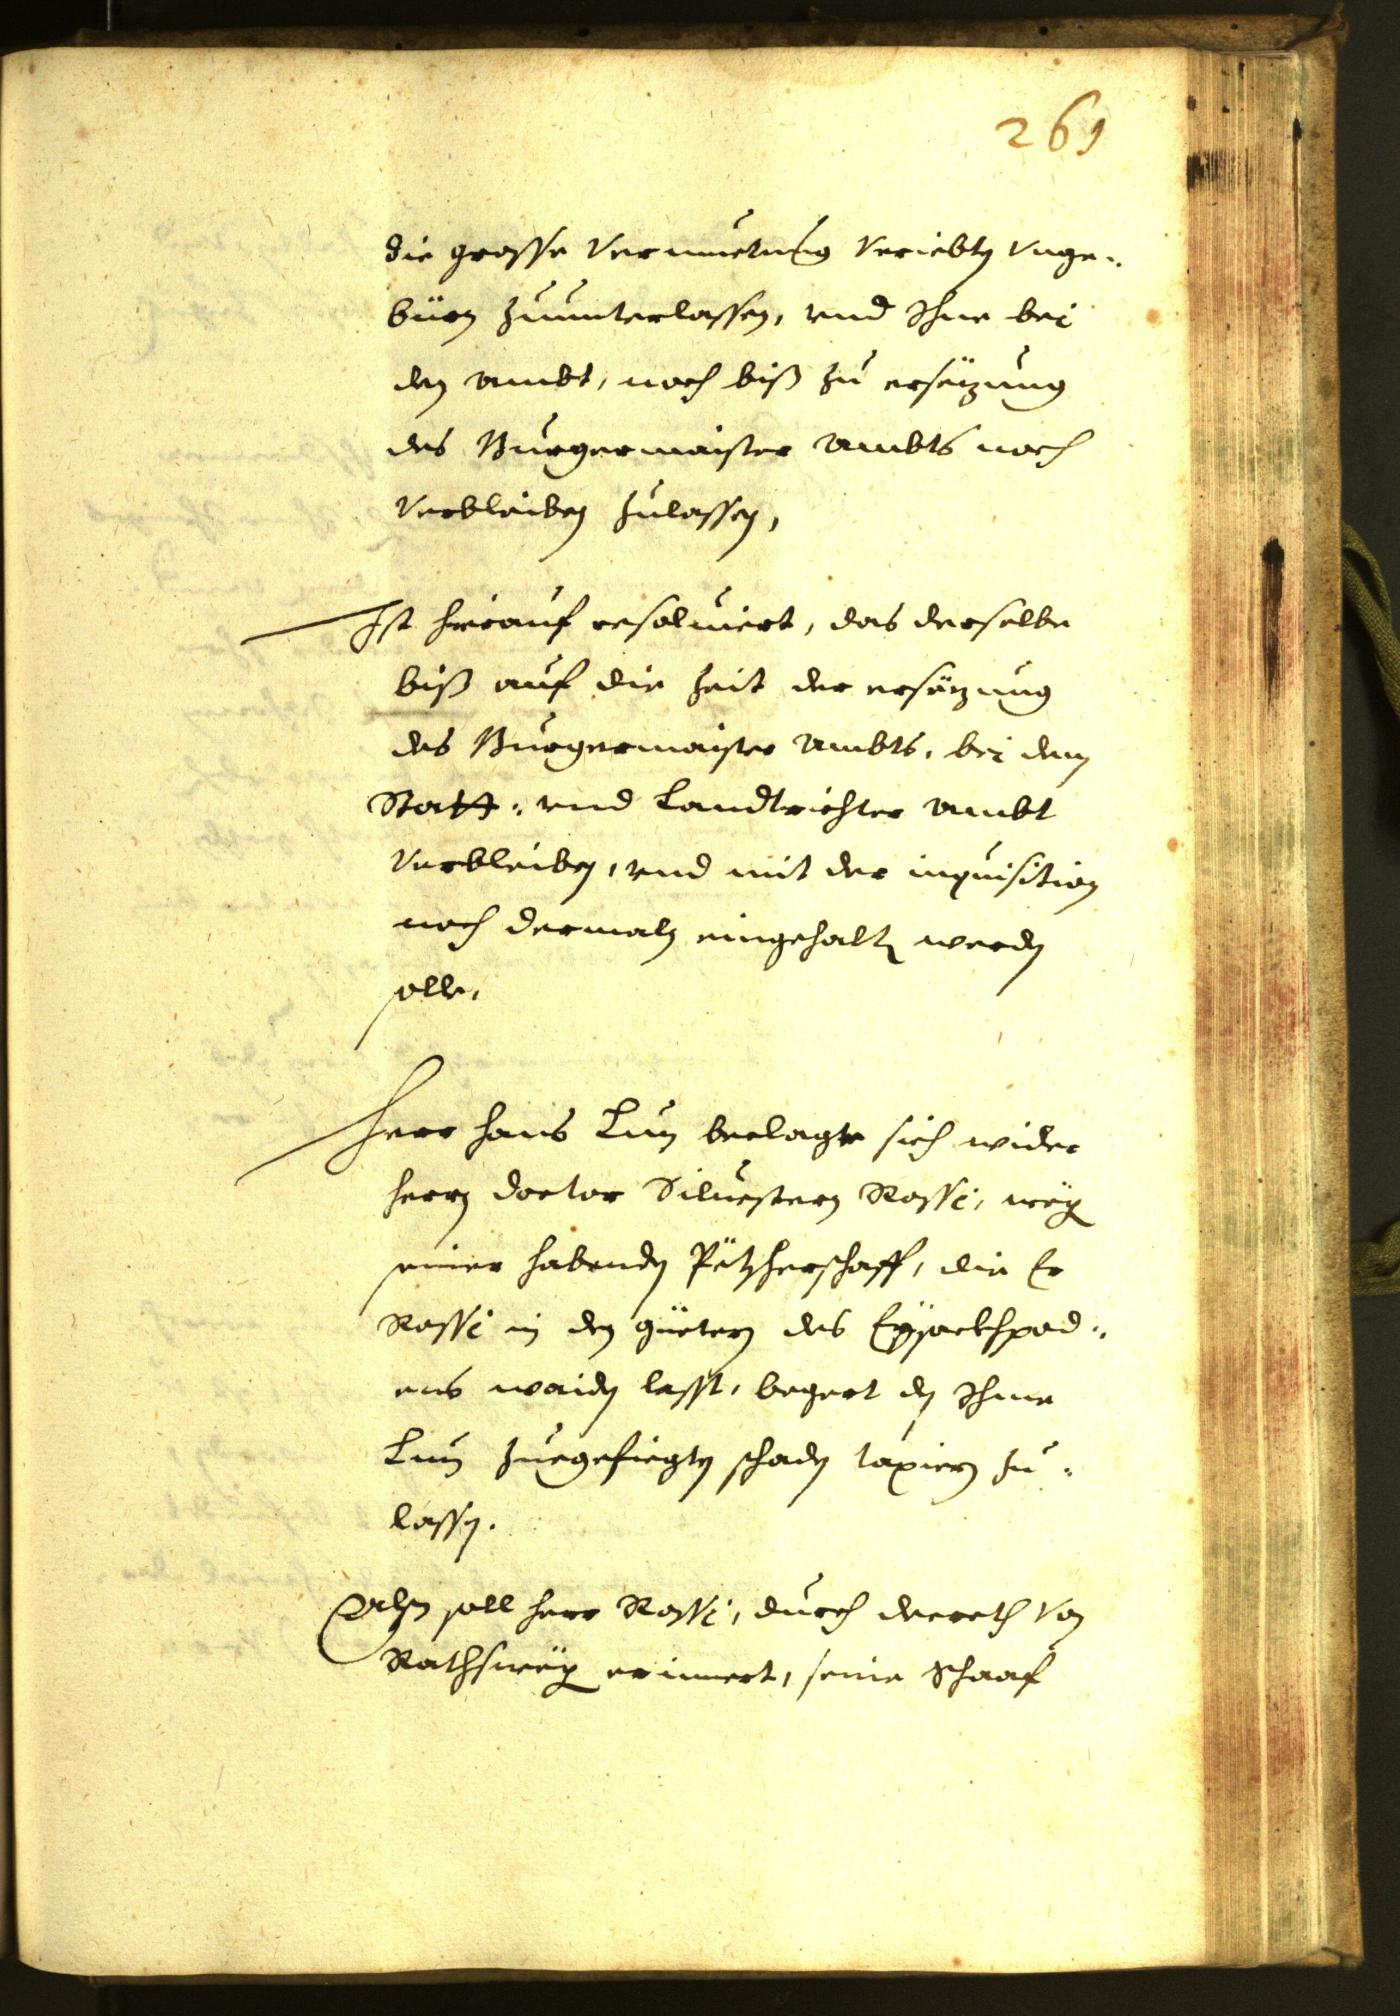 261
die grosse Vermuetung Veriebten Unge¬
bürn zuunterlassen, vnd Ihne bei
den ambt, noch biß zu ersäzung
des Burgermaister ambts noch
Verbleiben zulassen,
Ist hierauf resoluiert, das derselbe
biß auf die zeit der ersäzung
des Burgermaister ambts, bei dem
Statt: vnd Landtrichter ambt
Verbleiben, vnd mit der inquisition
noch dermaln eingehalten werden
solle,
Herr Hans Lun beclagte sich wider
herrn doctor Siluestern Rossi, weg
seiner habenden herschaff, die Er
Rossi in den güetern des Eysackhpod¬
ens waiden lasst, begert den Ihme
Lun zuegefiegten schaden taxiern zu¬
lassen.
soll herr Rossi, durch decreth Von
Rathsweg erinnert, seine Schaaf